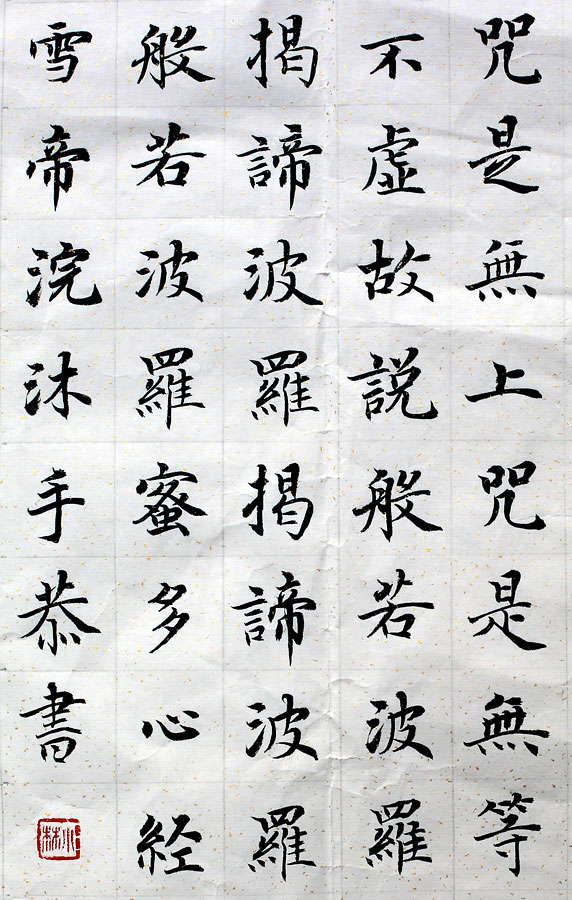 咒是無上咒是無等
不虛故說般若波羅
揭諦波羅揭諦波羅
般若波羅蜜多心経
雪帝浣沐手恭書